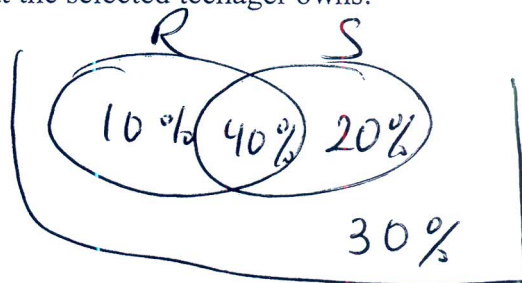 the selected teenager owns.
R S
10% 40% 20%
30%